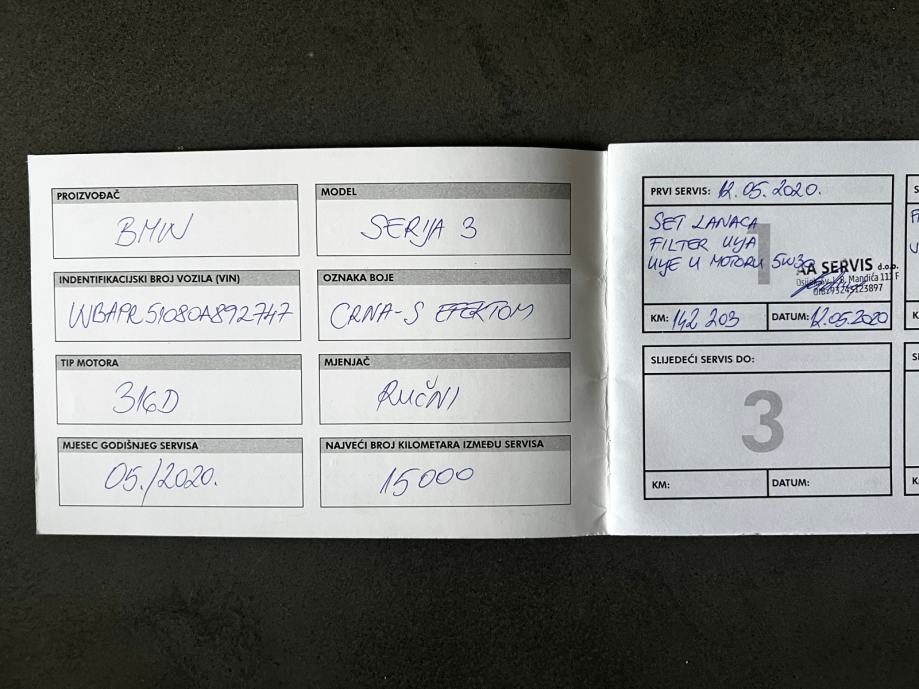 PROIZVOĐAČ
BMW
MODEL
SERIJA 3
INDENTIFIKACIJSKI BROJ VOZILA (VIN)
WBAPR51080A892747
OZNAKA BOJE
CRNA-S EFEKTOM
TIP MOTORA
316D
MJENJAČ
RUČNI
MJESEC GODIŠNJEG SERVISA
05./2020.
NAJVEĆI BROJ KILOMETARA IZMEĐU SERVISA
15000
PRVI SERVIS: 12.05.2020.
1
SET LANACA
FILTER ULJA
ULJE U MOTORU 5W30
AA SERVIS d.o.o.
Mandića 111 F
KM: 142 203
DATUM: 12.05.2020
SLIJEDEĆI SERVIS DO:
3
KM:
DATUM: